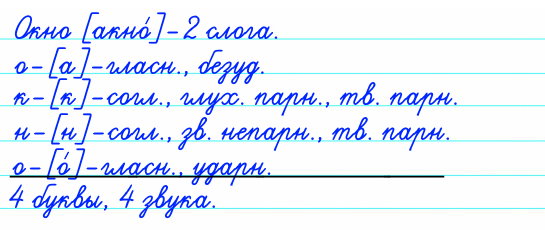 Окно [акно́] – 2 слога.
о – [а] – гласн., безуд.
к – [к] – согл., глух. парн., тв. парн.
н – [н] – согл., зв. непарн., тв. парн.
о – [о́] – гласн., ударн.
4 буквы, 4 звука.